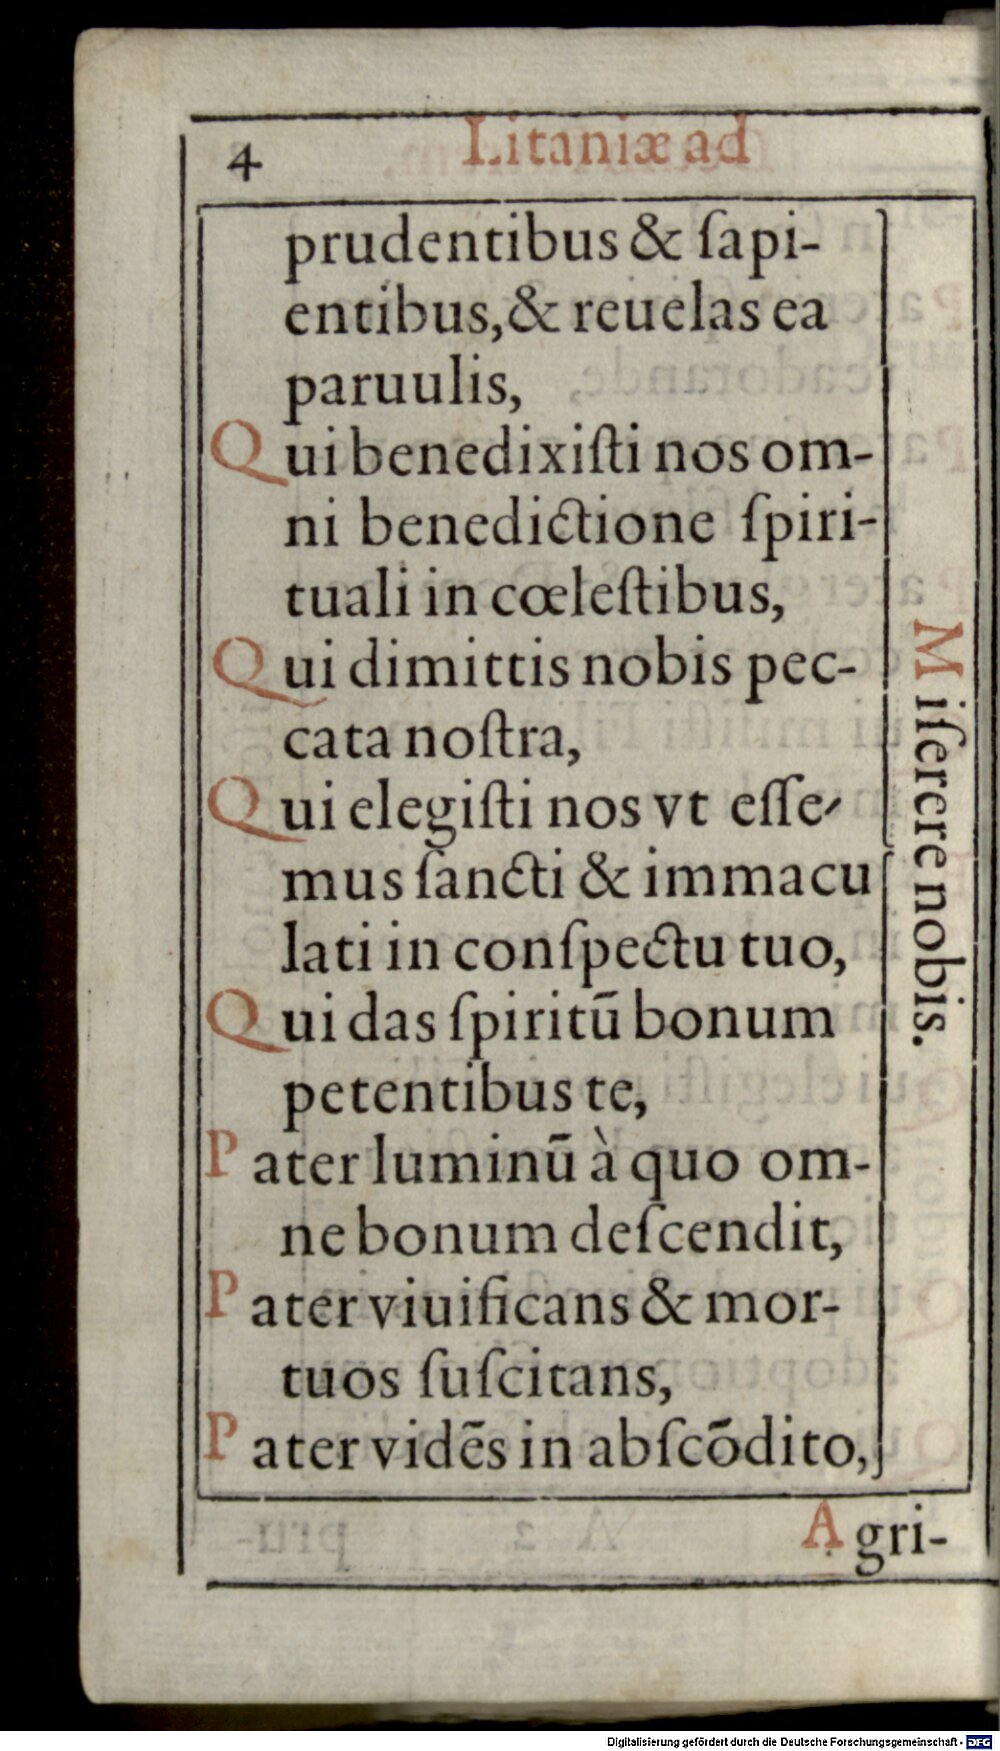 4 Litaniæ ad
prudentibus & ſapi-
entibus, & reuelas ea
paruulis,
Qui benedixiſti nos om-
ni benedictione ſpiri-
tuali in cœleſtibus,
Qui dimittis nobis pec-
cata noſtra,
Qui elegiſti nos vt eſſe-
mus ſancti & immacu
lati in conſpectu tuo,
Qui das ſpiritū bonum
petentibus te,
Pater luminū à quo om-
ne bonum deſcendit,
Pater viuificans & mor-
tuos ſuſcitans,
Pater vidēs in abſcōdito,
Miſerere nobis.
Agri-
Digitalisierung gefördert durch die Deutsche Forschungsgemeinschaft - DFG